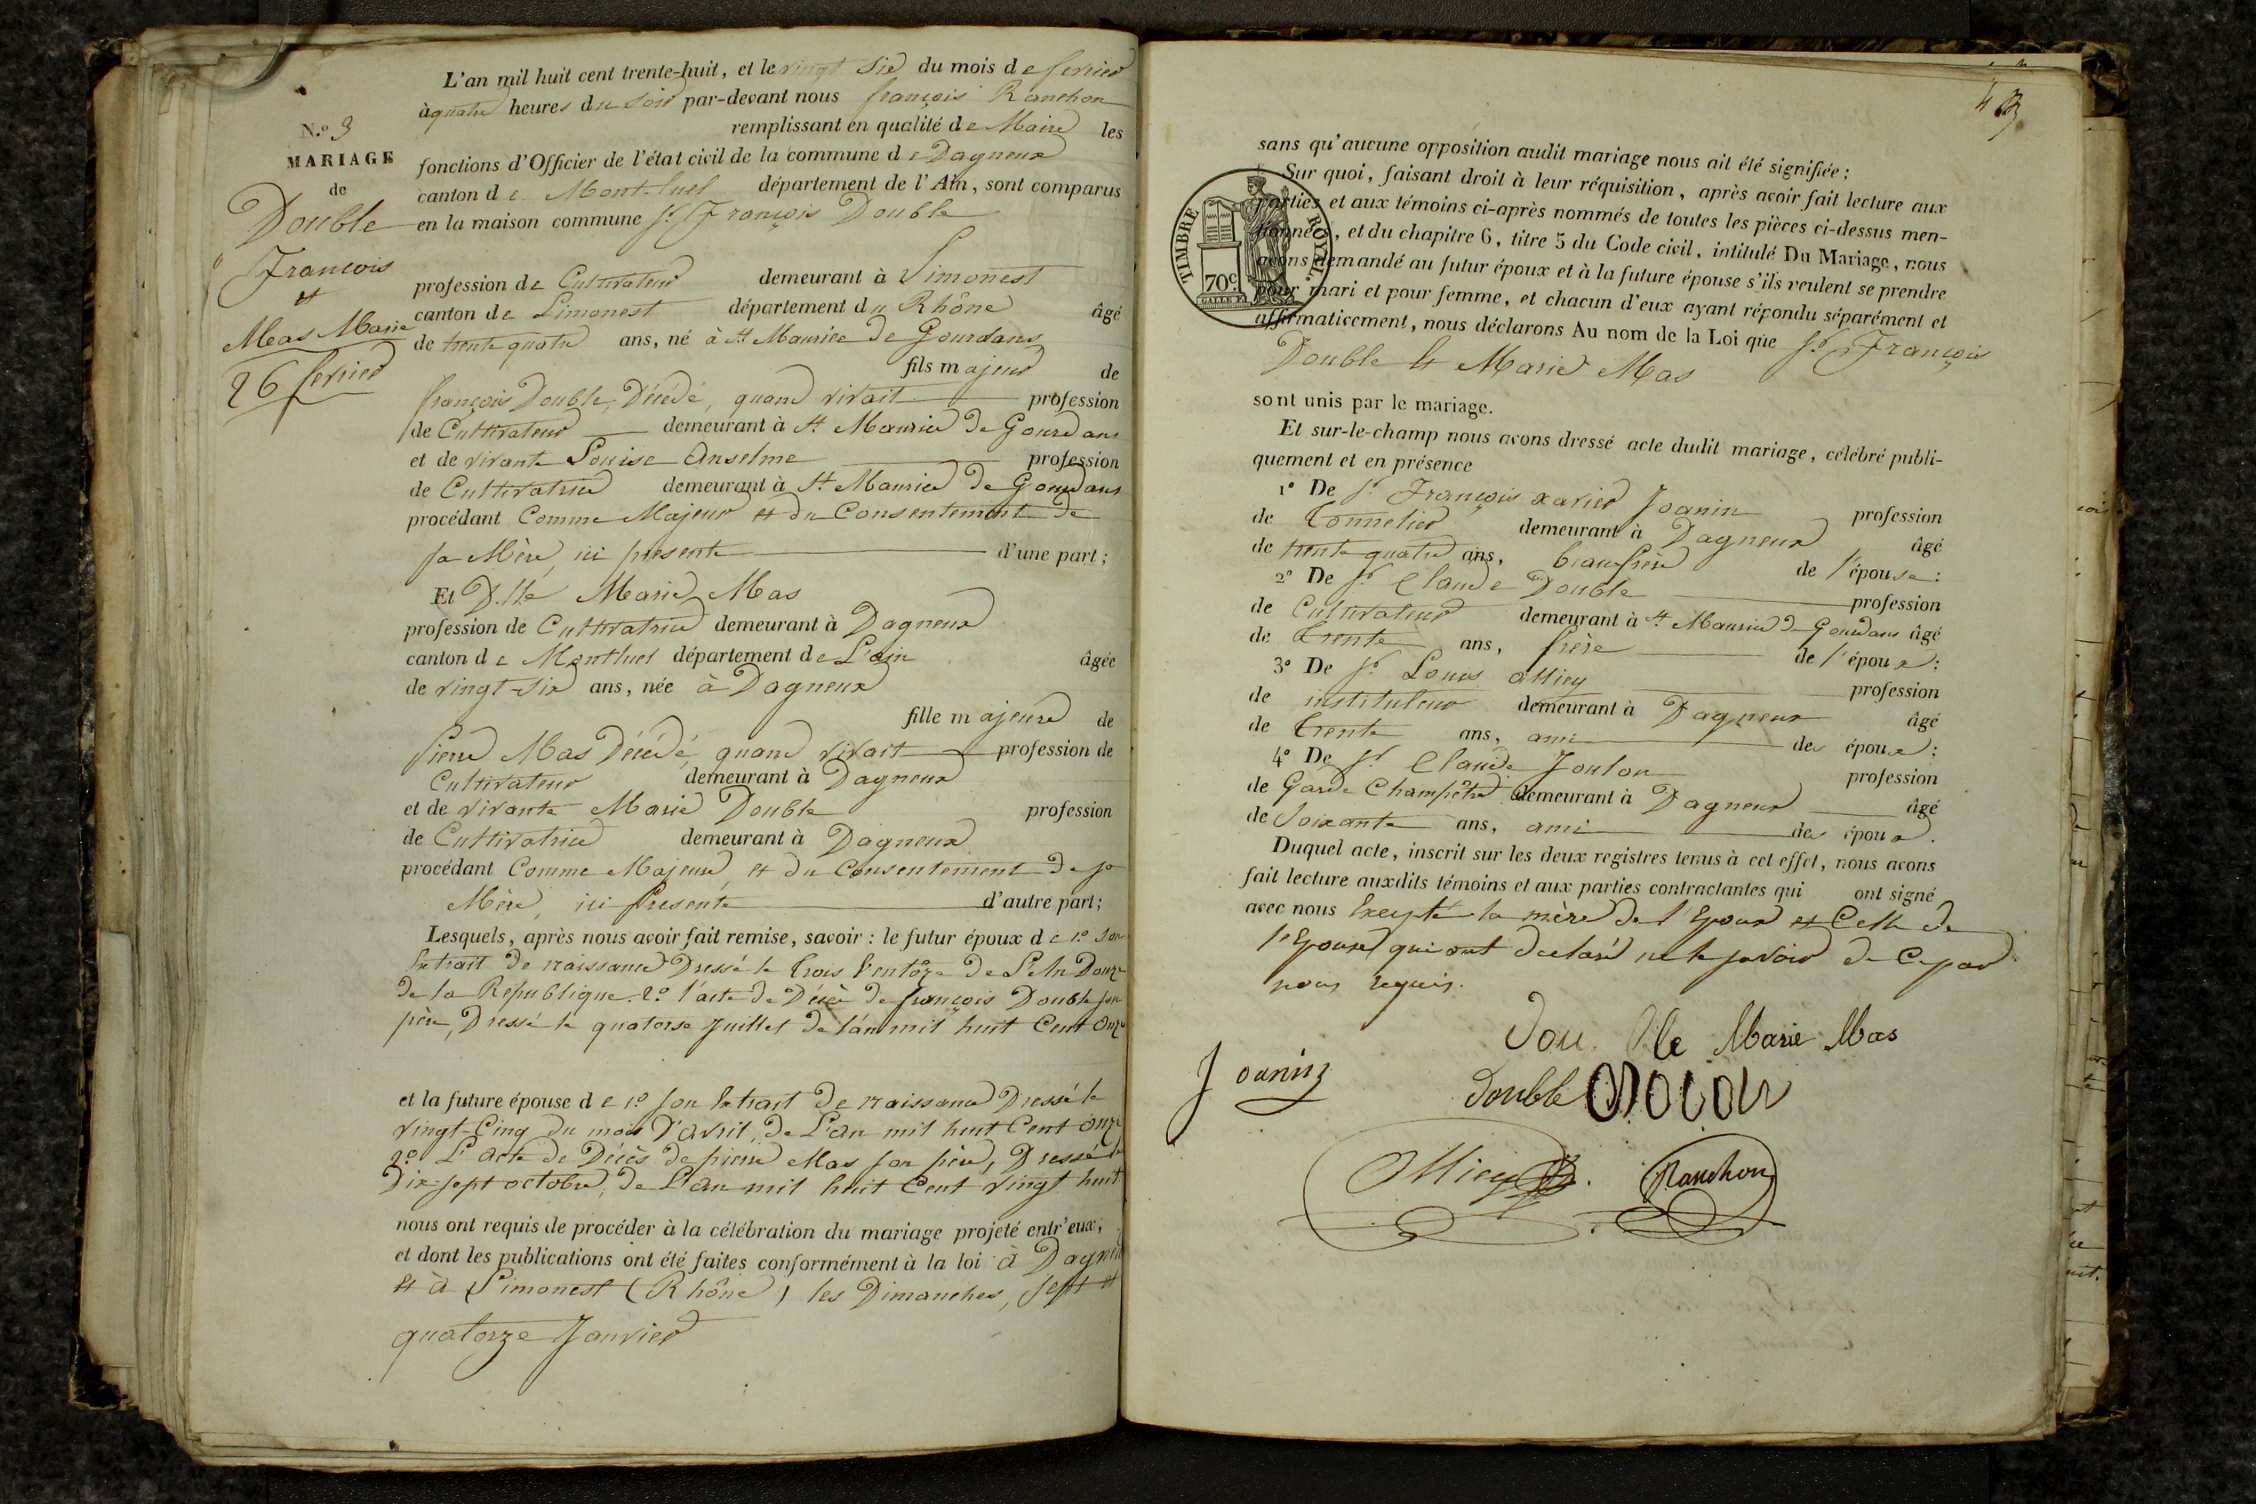 N.o 3
MARIAGE
de
Double
François
et
Mas Marie
26 fevrier
L'an mil huit cent trente-huit, et le vingt six du mois de fevrier
à quatre heures du soir par-devant nous françois Ranchon
remplissant en qualité de Maire les
fonctions d'Officier de l'état civil de la commune de Dagneux
canton de Mont-luel département de l'Ain, sont comparus
en la maison commune Sr. François Double
profession de Cultivateur demeurant à Limonest
canton de Limonest département du Rhône âgé
de trente quatre ans, né à St Maurice de Gourdans
fils majeur de
françois Double, Décédé, quand vivait profession
de Cultivateur demeurant à St Maurice De Gourdans
et de vivante Louise Anselme profession
de Cultivatrice demeurant à St Maurice De Gourdans
procédant Comme Majeur et du Consentement de
sa Mère, ici présente d'une part;
Et D.lle Marie Mas
profession de Cultivatrice demeurant à Dagneux
canton de Montluel département de L'ain âgée
de vingt-six ans, née à Dagneux
fille majeure de
Pierre Mas Décédé, quand vivait profession de
Cultivateur demeurant à Dagneux
et de vivante Marie Double profession
de Cultivatrice demeurant à Dagneux
procédant Comme Majeure et du Consentement de sa
Mère, ici Présente d'autre part;
Lesquels, après nous avoir fait remise, savoir : le futur époux de 1.o Son
Extrait de naissance Dressé le trois Ventôze de L'An Douze
de la Republique. 2.o l'acte de Décès de françois Double son
père, Dressé le quatorse Juillet de l'an mil huit Cent Onze
et la future épouse de 1.o son Extrait de naissance Dressé le
vingt-Cinq du mois D'avril, de L'an mil huit Cent Onze
2.o L'acte de Décès de pierre Mas son père, Dressé le
Dix-sept octobre, de L'an mil huit Cent vingt huit
nous ont requis de procéder à la célébration du mariage projeté entr'eux,
et dont les publications ont été faites conformément à la loi à Dagneux
et à Limonest (Rhône) les Dimanches, sept et
quatorze Janvier
sans qu'aucune opposition audit mariage nous ait été signifiée;
Sur quoi, faisant droit à leur réquisition, après avoir fait lecture aux
parties et aux témoins ci-après nommés de toutes les pièces ci-dessus men-
tionnées, et du chapitre 6, titre 5 du Code civil, intitulé Du Mariage, nous
avons demandé au futur époux et à la future épouse s'ils veulent se prendre
pour mari et pour femme, et chacun d'eux ayant répondu séparément et
affirmativement, nous déclarons Au nom de la Loi que Sr. François
Double Et Marie Mas
TIMBRE ROYAL.
70c.
sont unis par le mariage.
Et sur-le-champ nous avons dressé acte dudit mariage, célébré publi-
quement et en présence
1o De Sr. François xavier Joanin profession
de Tonnelier demeurant à Dagneux âgé
de trente quatre ans, beaufrère de l'épouse :
2o De Sr. Claude Double profession
de Cultivateur demeurant à St Maurice De Gourdans âgé
de Trente ans, frère de l'époux :
3o De Sr. Louis Miey profession
de instituteur demeurant à Dagneux âgé
de Trente ans, ami des époux :
4o De Sr. Claude Joulon profession
de Garde Champêtre demeurant à Dagneux âgé
de Soixante ans, ami des époux.
Duquel acte, inscrit sur les deux registres tenus à cet effet, nous avons
fait lecture auxdits témoins et aux parties contractantes qui ont signé
avec nous Excepté la mère de l'Epoux et Celle de
l'Epouse qui ont déclaré ne le savoir de Ce par
nous requis.
Dou ble Marie Mas
Joanin
Double
Miey
Ranchon